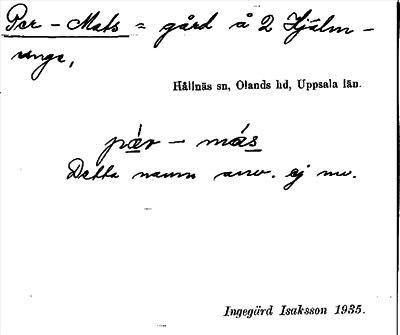 Per - Mats = gård å 2 Hjälm -
unge,
Hållnäs sn, Olands hd, Uppsala län.
pǽr - más
Detta namn anv. ej nu.
Ingegärd Isaksson 1935.